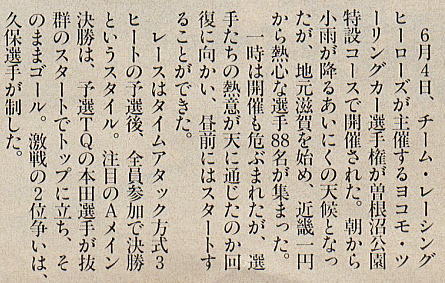 ６月４日、チーム・レーシング
ヒーローズが主催するヨコモ・ツ
ーリングカー選手権が曽根沼公園
特設コースで開催された。朝から
小雨が降るあいにくの天候となっ
たが、地元滋賀を始め、近畿一円
から熱心な選手88名が集まった。
　一時は開催も危ぶまれたが、選
手たちの熱意が天に通じたのか回
復に向かい、昼前にはスタートす
ることができた。
　レースはタイムアタック方式３
ヒートの予選後、全員参加で決勝
というスタイル。注目のＡメイン
決勝は、予選ＴＱの本田選手が抜
群のスタートでトップに立ち、そ
のままゴール。激戦の２位争いは、
久保選手が制した。